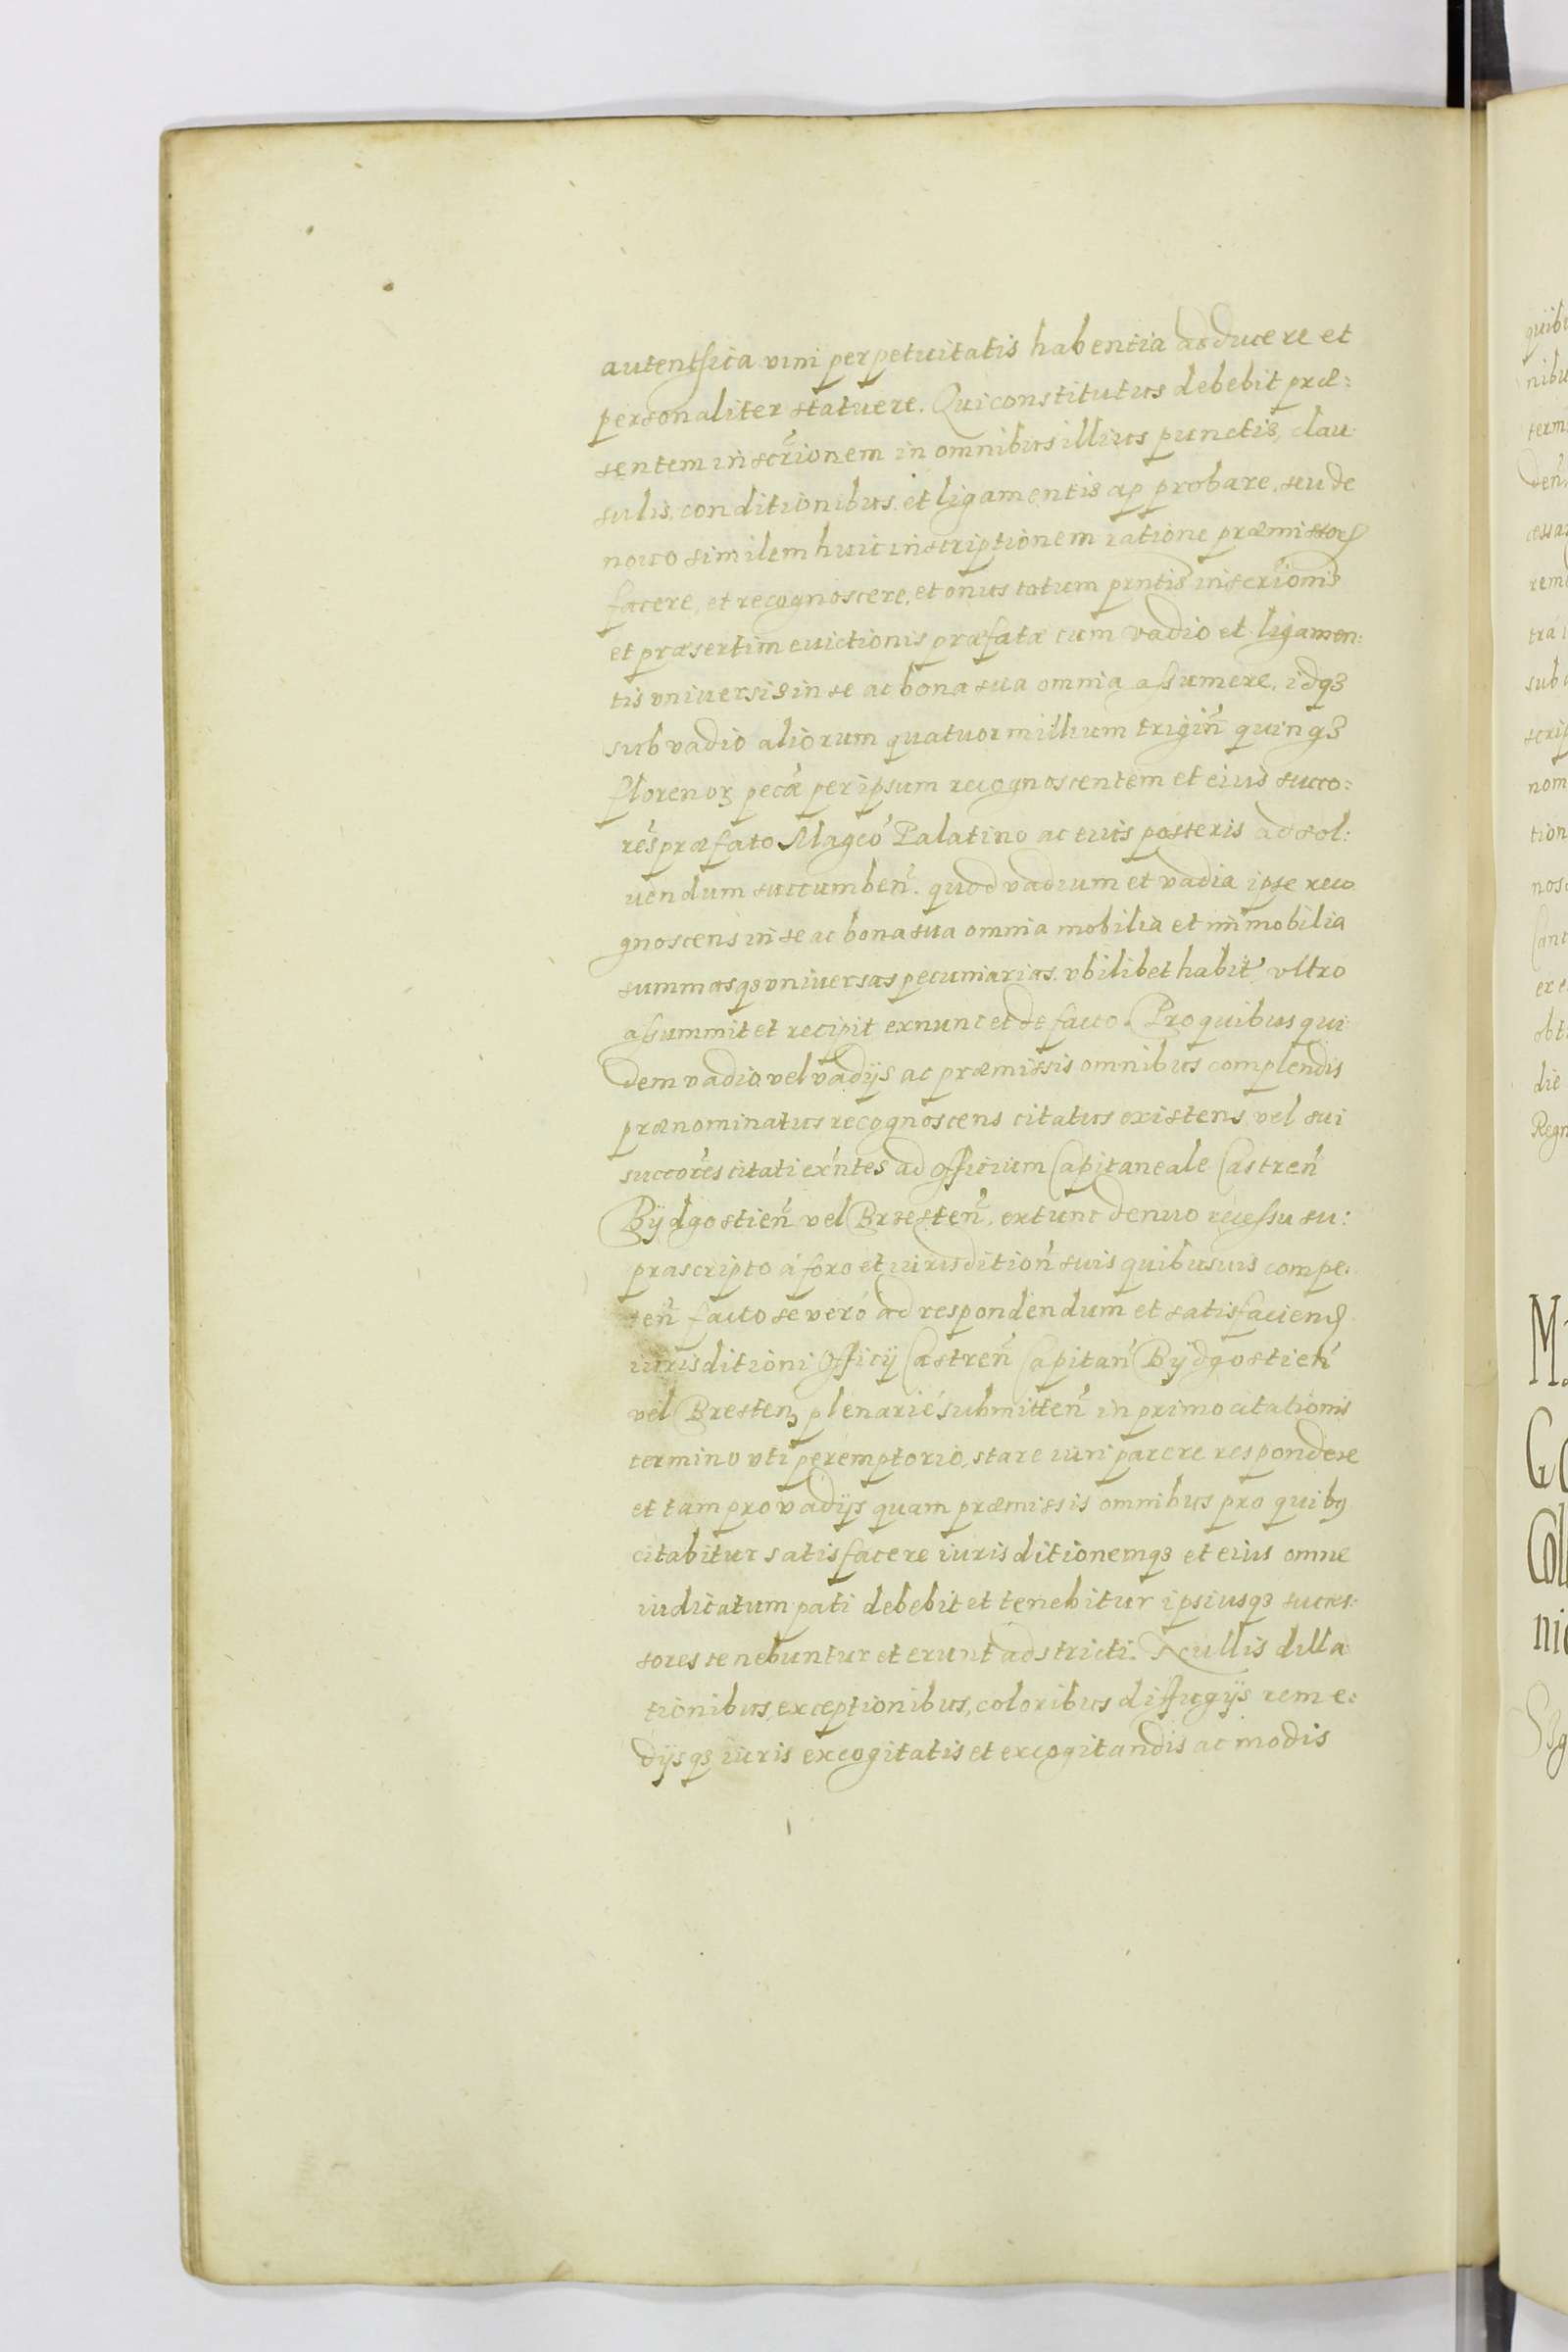 autenthica vim perpetuitatis habentia adducere et
personaliter statuere. Qui constitutus debebit præ:
sentem inscr̃ionem in omnibus illius punctis, clau
sulis, conditionibus, et ligamentis approbare, seu de
nouo similem huic inscriptionem ratione præmissorꝝ
facere, et recognoscere, et onus totum prntis inscrĩonis
et præsertim euictionis præfatæ cum vadio et ligamen:
tis vniuersis in se ac bona sua omnia assumere, idqꝫ
sub vadio aliorum quatuor millium trigiñ quinqꝫ
florenoꝝ pecæ̃ per ipsum recognoscentem et eius succo:
rẽs præfato Magcõ Palatino ac eius posteris ad sol:
uendum succumbeñ. quod vadium et vadia ipse reco
gnoscens in se ac bona sua omnia mobilia et immobilia
summasqꝫ vniuersas pecuniarias vbilibet habit̃ vltro
assummit et recipit exnunc et de facto. Pro quibus qui
dem vadio vel vadijs ac præmissis omnibus complendis
prænominatus recognoscens citatus existens vel sui
succorẽs citati exñtes ad officium Capitaneale Castreñ
Bÿdgostieñ vel Bresteñ. extunc denuo recessu su:
prascripto á foro et iurisditioñ suis quibusuis compe:
teñ facto se veró ad respondendum et satisfaciend
iurisditioni officij Castreñ Capitañ Bÿdgostieñ
vel Bresteñ plenarié submitteñ in primo citationis
termino vti peremptorio, stare iuri parere respondere
et tam pro vadijs quam præmissis omnibus pro quibꝰ
citabitur satisfacere iurisditionemqꝫ et eius omne
iudicatum pati debebit et tenebitur ipsiusqꝫ succes:
sores tenebuntur et erunt adstricti. Nullis dilla
tionibus, exceptionibus, coloribus diffugijs reme:
dijsqꝫ iuris excogitatis et excogitandis ac modis